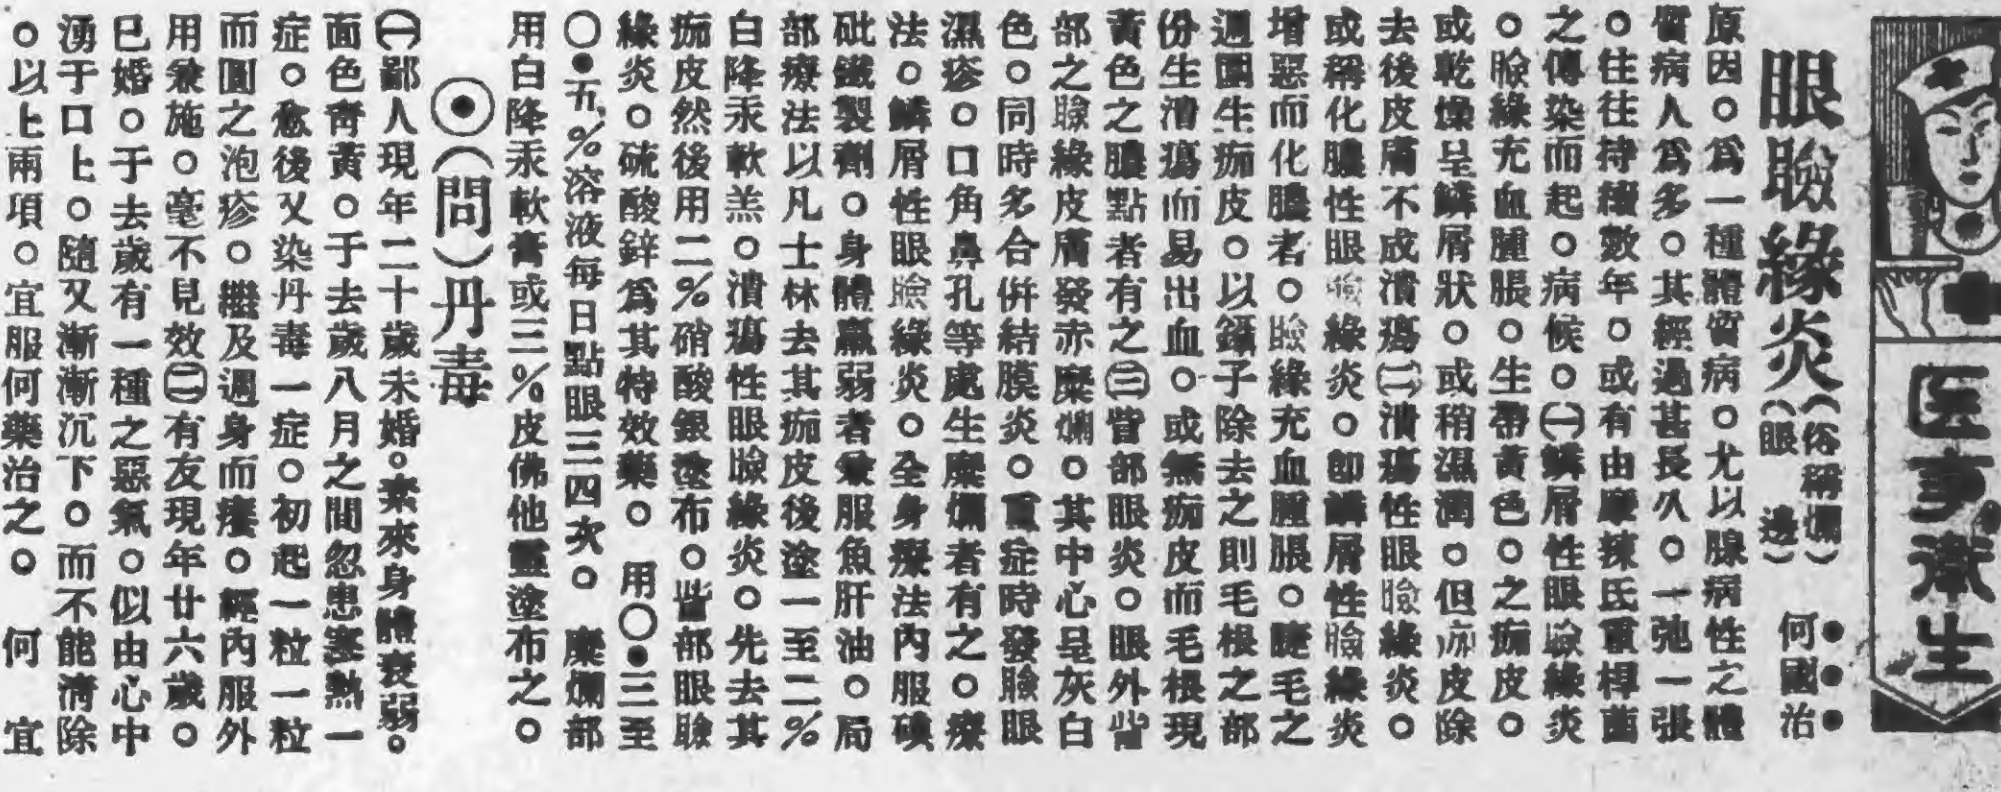 医事衛生
眼瞼緣炎(俗稱爛眼邊)
何國治
原因。爲一種體質病。尤以腺病性之體
質病人爲多。其經過甚長久。一弛一張
。往往持續數年。或有由摩拣氏重桿菌
之傳染而起。病候。㈠鱗屑性眼瞼緣炎
。瞼緣充血腫脹。生帶黃色。之痂皮。
或乾燥呈鱗屑狀。或稍濕潤。但痂皮除
去後皮膚不成潰瘍㈡潰瘍性眼瞼緣炎。
或稱化膿性眼瞼緣炎。卽鱗屑性瞼緣炎
增惡而化膿者。瞼緣充血腫脹。睫毛之
週圍生痂皮。以鑷子除去之則毛根之部
份生潰瘍而易出血。或無痂皮而毛根現
黃色之膿點者有之㈢眥部眼炎。眼外眥
部之瞼緣皮膚發赤糜爛。其中心呈灰白
色。同時多合併結膜炎。重症時發瞼眼
濕疹。口角鼻孔等處生糜爛者有之。療
法。鱗屑性眼瞼緣炎。全身療法內服碘
砒鐵製劑。身體羸弱者兼服魚肝油。局
部療法以凡士林去其痂皮後塗一至二%
白降汞軟羔。潰瘍性眼瞼緣炎。先去其
痂皮然後用二%硝酸銀塗布。眥部眼瞼
緣炎。硫酸鋅爲其特效藥。用〇●三至
〇●五%溶液每日點眼三四次。糜爛部
用白降汞軟膏或三%皮佛他靈塗布之。
⊙(問)丹毒
㈠鄙人現年二十歲未婚。素來身體衰弱。
面色靑黃。于去歲八月之間忽患寒熱一
症。愈後又染丹毒一症。初起一粒一粒
而圓之泡疹。繼及週身而癢。經內服外
用兼施。毫不見效㈡有友現年廿六歲。
已婚。于去歲有一種之惡氣。似由心中
湧于口上。隨又漸漸沉下。而不能淸除
。以上兩項。宜服何藥治之。何 宜